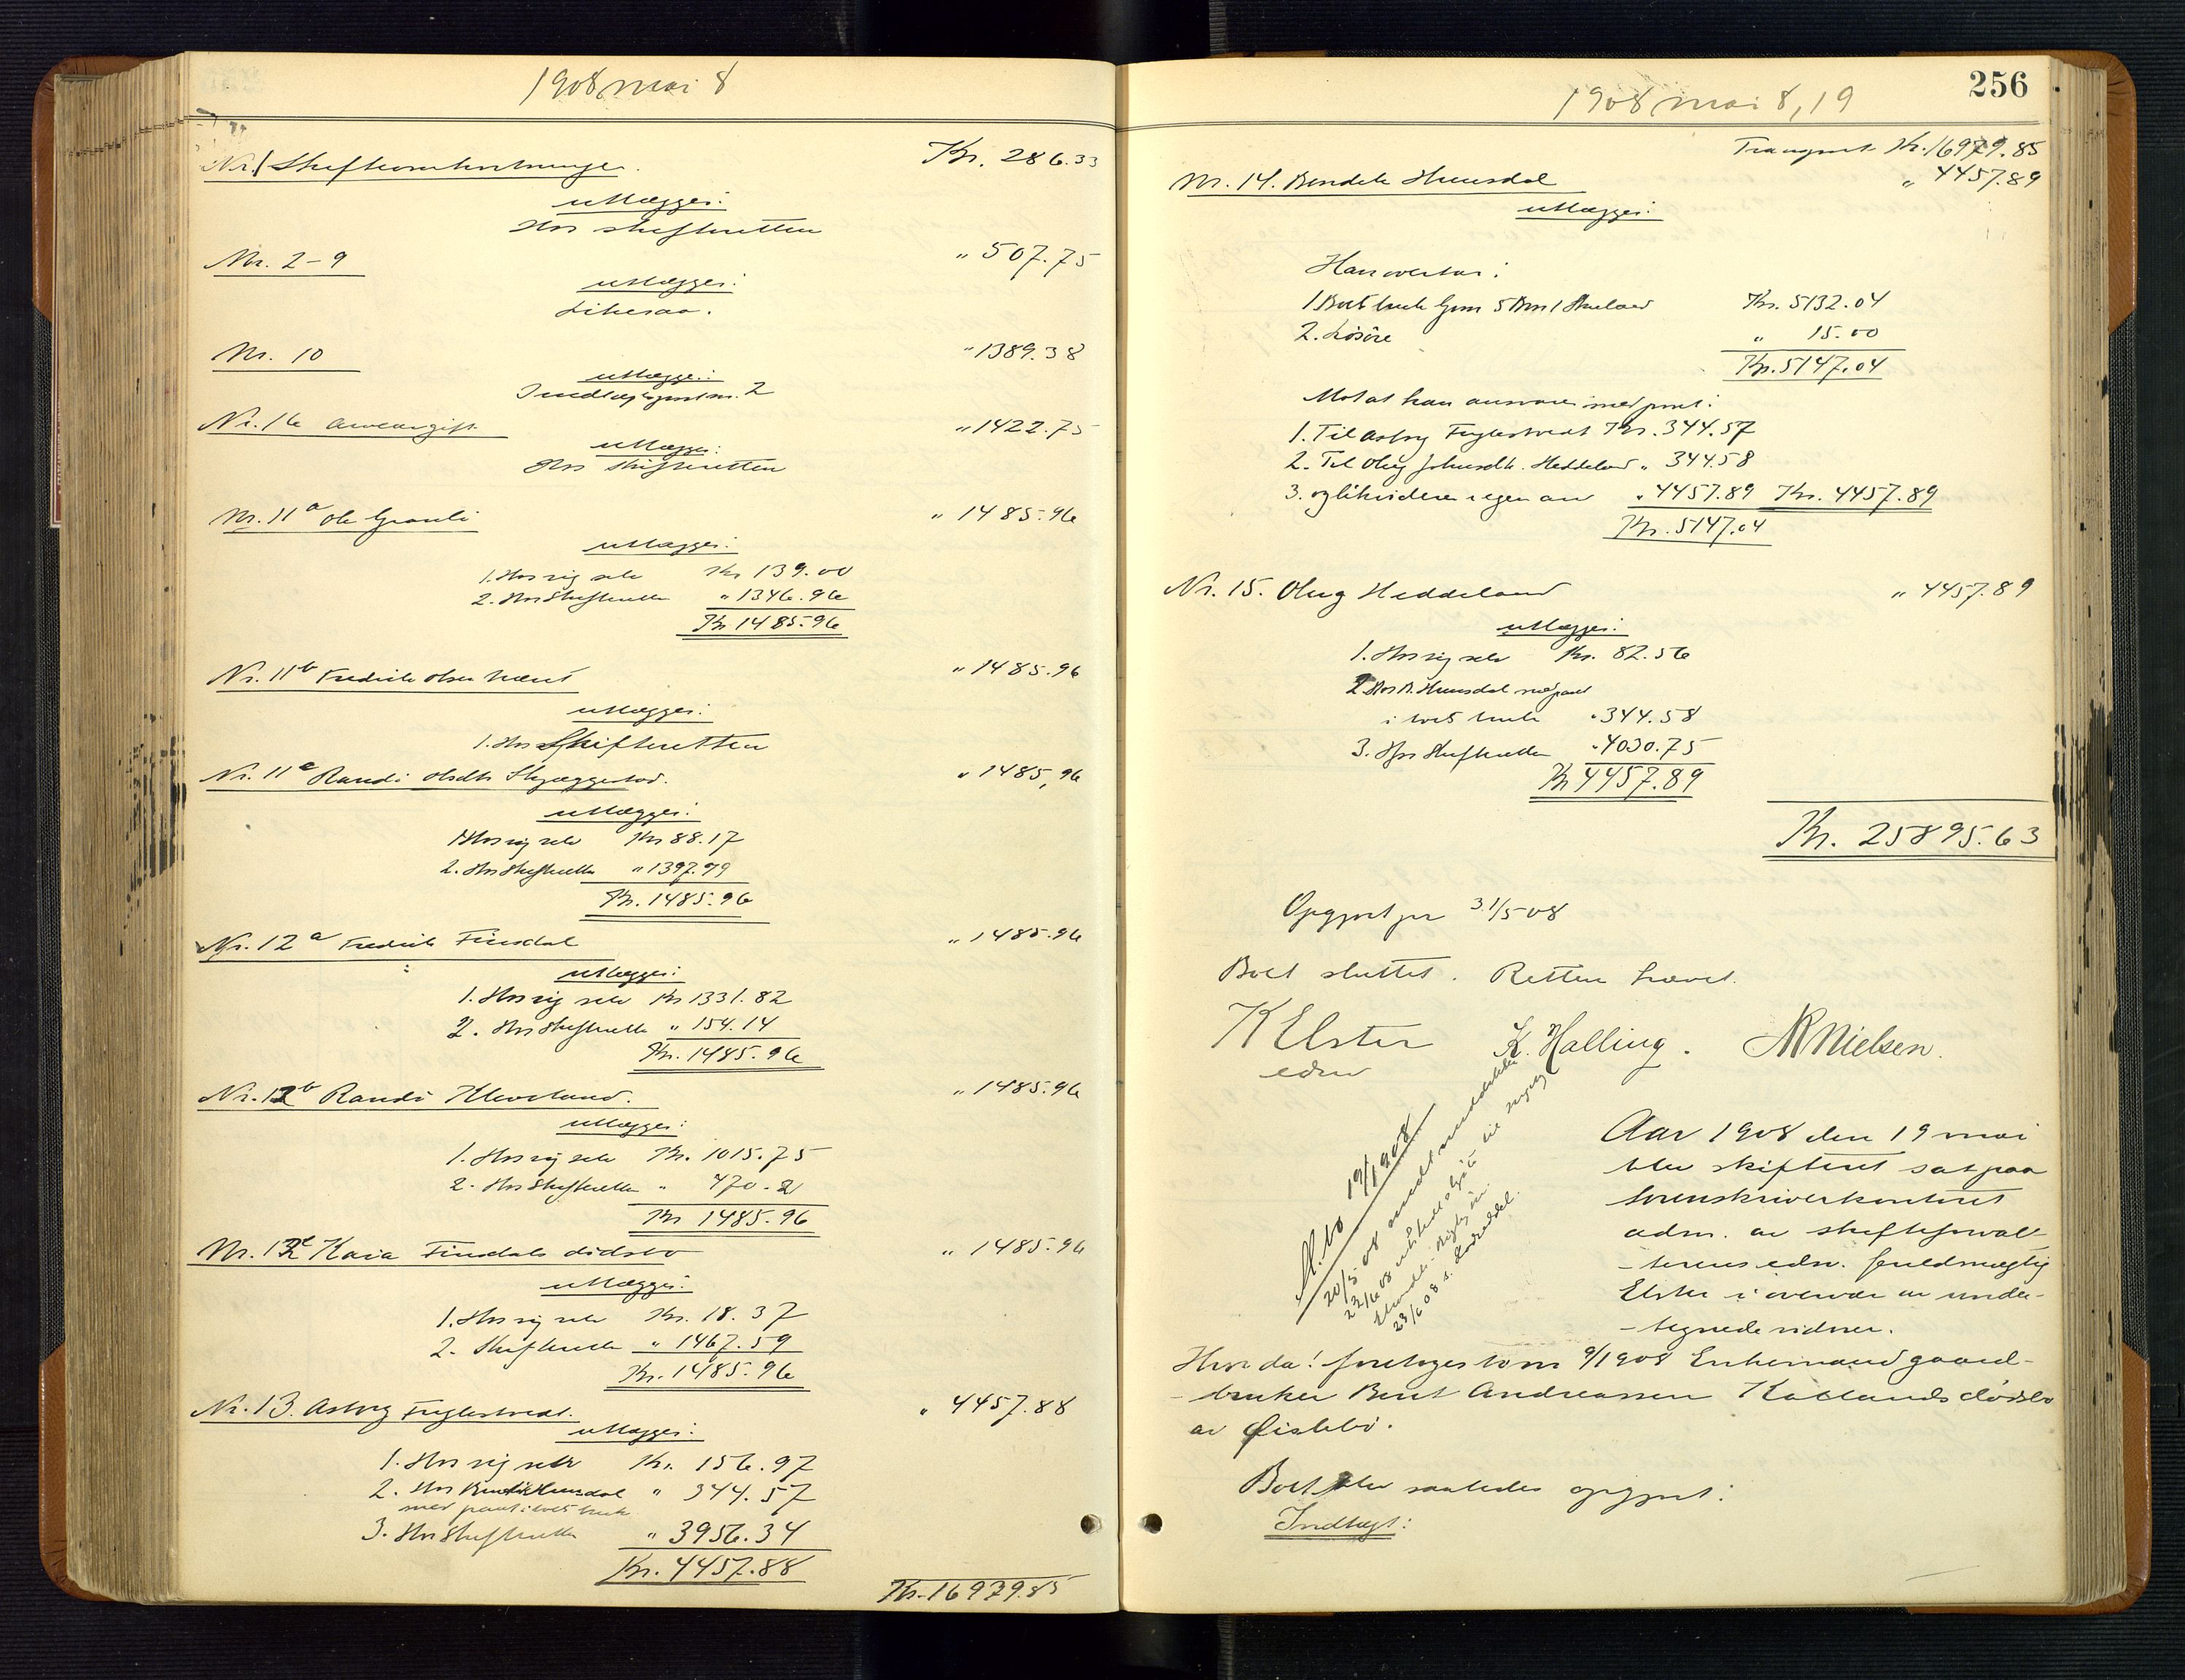 1908 mai 8
Nr. 1 Skifteomkostninger. Kr. 286.33
utlægges:
Hos skifteretten
Nr. 2-9 " 507.75
utlægges:
Likesaa.
Nr. 10 " 1389.38
utlægges:
Indtægtspost nr. 2
Nr. 16 Arveavgift " 1422.75
utlægges:
Hos skifteretten
Nr. 11a Ole Granli " 1485.96
utlægges:
1. Hos sig selv Kr 139.00
2. Hos Skifteretten " 1346.96
Kr 1485.96
Nr. 11b Fredrik Olsen " 1485.96
utlægges:
1. Hos Skifteretten
Nr. 11c Randi Olsdtr Skjæggestad. " 1485,96
utlægges:
1. Hos sig selv Kr 88.17
2. Hos Skifteretten " 1397.79
Kr. 1485.96
Nr. 12a Fredrik Finsdal " 1485.96
utlægges:
1. Hos sig selv Kr 1331.82
2. Hos Skifteretten " 154.14
Kr. 1485.96
Nr. 12b Randi Kleveland. " 1485.96
utlægges:
1. Hos sig selv Kr. 1015.75
2. Hos Skifteretten " 470.21
Kr 1485.96
Nr. 12c Kaia Finsdals dødsbo " 1485.96
utlægges:
1. Hos sig selv Kr. 18.37
2. Skifteretten " 1467.59
Kr. 1485.96
Nr. 13. Asborg Fuglestvedt. " 4457.88
utlægges:
1. Hos sig selv Kr. 156.97
2. Hos Bendik Hunsdal " 344.57
med pant i boets bruk
3. Hos Skifteretten " 3956.34
Kr. 4457.88
Kr. 16979.85
256
1908 mai 8, 19
Transport Kr. 16979.85
Nr. 14. Bendik Hunsdal " 4457.89
utlægges:
Han overtar:
1. Boets bruk Gnr 5 Bnr 1 Kr. 5132.04
2. Løsøre " 15.00
Kr. 5147.04
Motat han ansvarer med pant:
1. Til Asborg Fuglestvedt Kr. 344.57
2. Til Olug Johnsdtr. Heddeland " 344.58
3. og likviderer egen arv " 4457.89 Kr. 4457.89
Kr. 5147.04
Nr. 15. Olug Heddeland " 4457.89
utlægges:
1. Hos sig selv Kr. 82.56
2. Hos B. Hunsdal med pant
i boets bruk " 344.58
3. Hos Skifteretten " 4030.75
Kr 4457.89
Kr. 25895.63
Opgjort pr 31/5 08
Boet sluttet. Retten hævet.
KElster K. Halling. NNielsen.
edsv
Aar 1908 den 19 mai
blev skifteret sat paa
Sorenskriverkontoret
adm. av skifteforval-
-terens edsv. fuldmægtig
Elster i overvær av under-
-tegnede vidner.
Hvor da: foretoges bo nr 9/1908 Enkemand gaard-
-bruker Bent Andreassen Kablands dødsbo
av Øislebø.
Boet blev saaledes opgjort:
Indtægt: